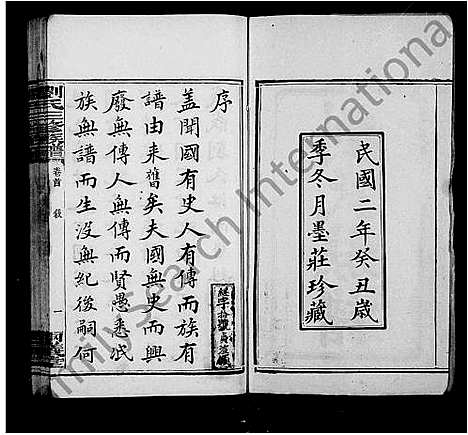 民國二年癸丑歲
季冬月墨莊珍藏
序
蓋聞國有史人有傳而族有
譜由来舊矣夫國無史而興
廢無傳人無傳而賢愚悉泯
族無譜而生没無紀後嗣何
劉氏三修族譜
卷首
一
Family Search International